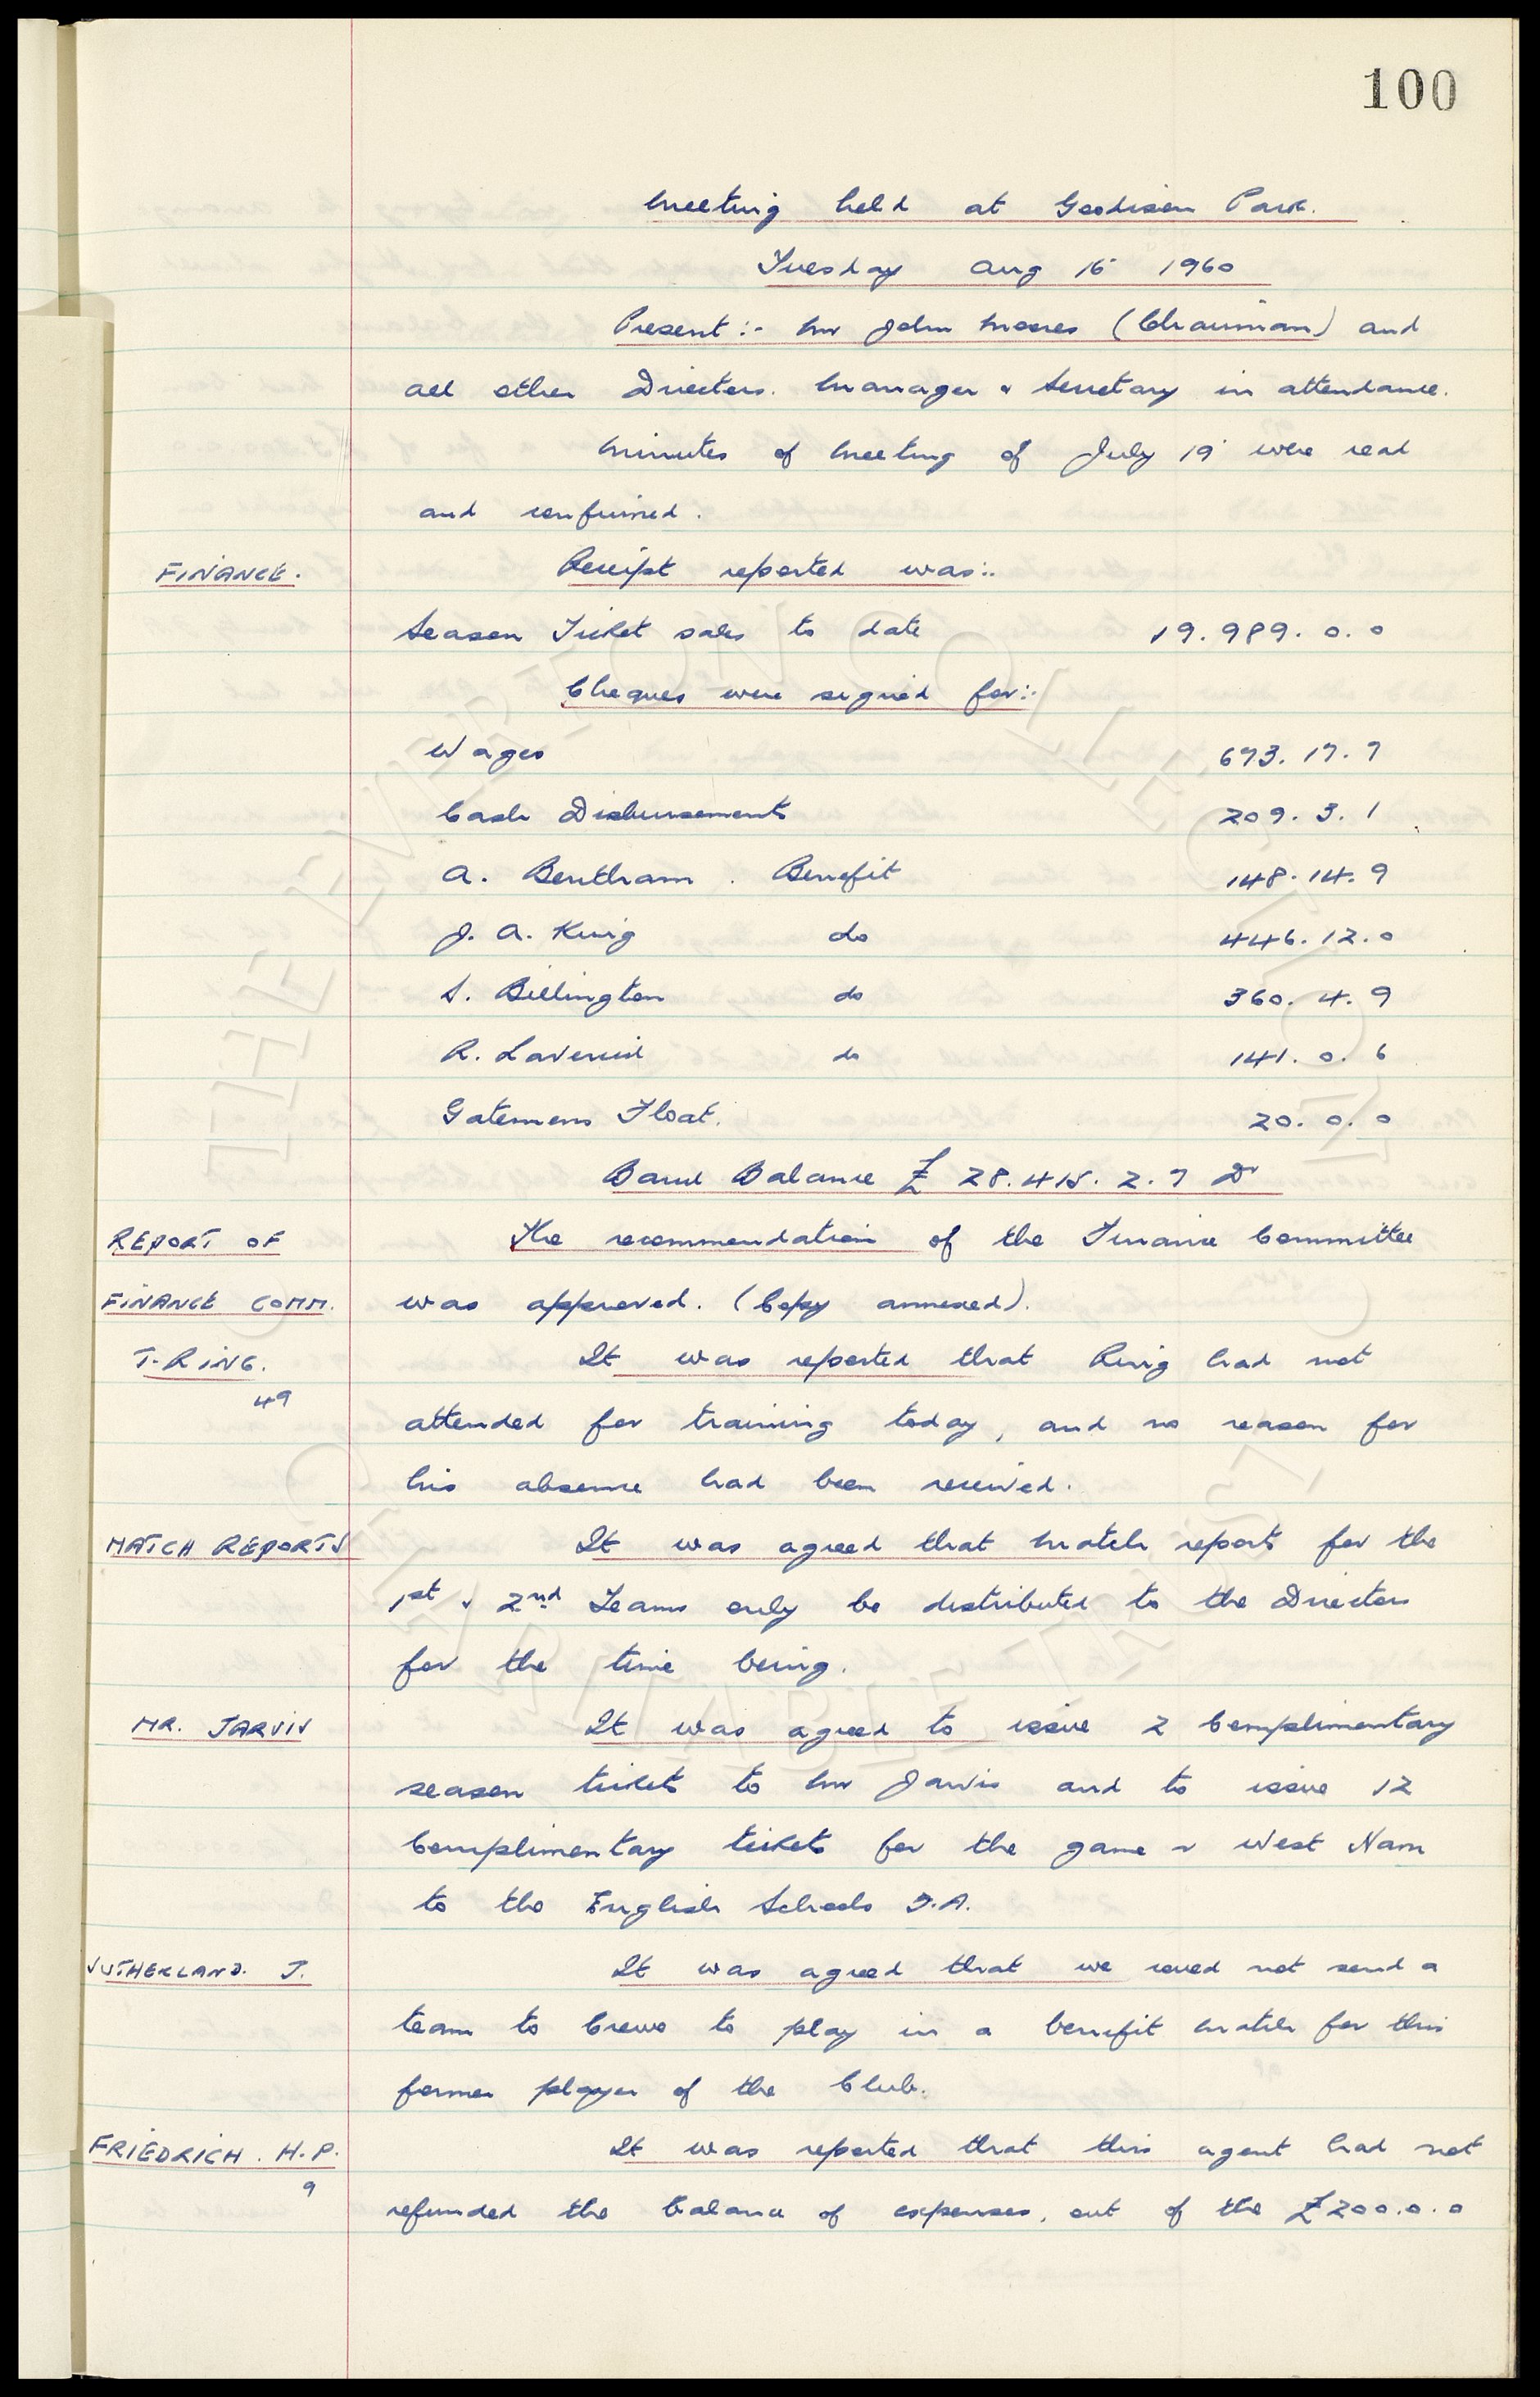 100
Meeting held at Goodison Park.
Tuesday Aug 16 1960
Present:- Mr John Moores (Chairman) and
all other Directors. Manager & Secretary in attendance.
Minutes of Meeting of July 19 were read
and confirmed.
FINANCE. Receipt reported was:-
Season Ticket sales to date 19.989.0.0
Cheques were signed for:-
Wages 673.17.7
Cash Disbursements 209.3.1
A. Bentham. Benefit 148.14.9
J. A. King do 446.12.0
S. Billington do 360.4.9
R. Laverick do 141.0.6
Gatemens Float. 20.0.0
Bank Balance £28.415.2.7 Dr
REPORT OF The recommendation of the Finance Committee
FINANCE COMM. was approved. (Copy annexed).
T. RING. It was reported that Ring had not
49
attended for training today, and no reason for
his absence had been received.
MATCH REPORTS It was agreed that Match reports for the
1st & 2nd Teams only be distributed to the Directors
for the time being.
MR. JARVIS It was agreed to issue 2 Complimentary
season tickets to Mr Jarvis and to issue 12
Complimentary tickets for the game v West Ham
to the English Schools F.A.
SUTHERLAND. J. It was agreed that we could not send a
team to Crewe to play in a benefit match for this
former player of the Club.
FRIEDRICH. H.P. It was reported that this agent had not
9
refunded the balance of expenses, out of the £200.0.0